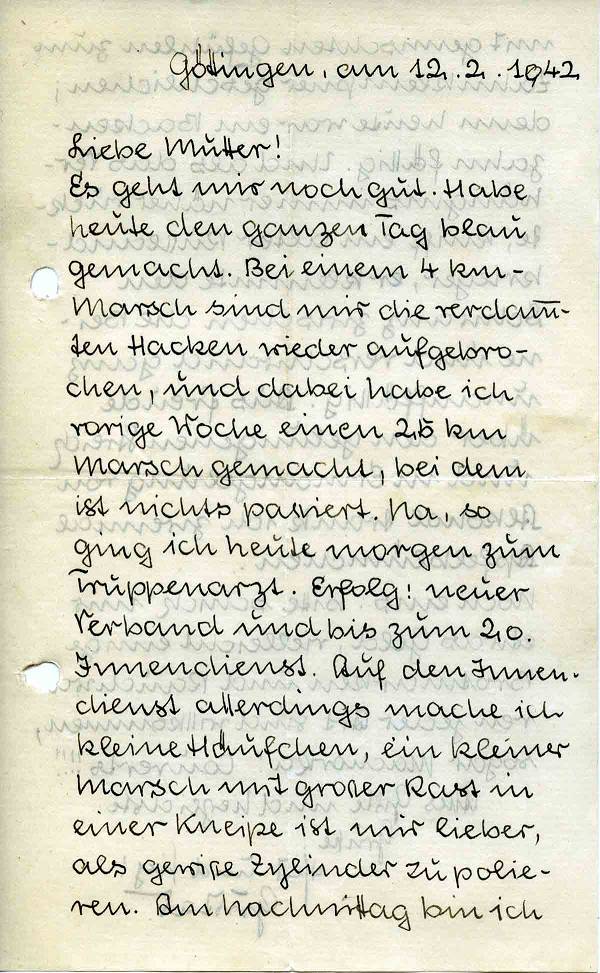 Göttingen, am 12.2.1942
Liebe Mutter!
Es geht mir noch gut. Habe
heute den ganzen Tag blau
gemacht. Bei einem 4 km-
Marsch sind mir die verdam̅-
ten Hacken wieder aufgebro-
chen, und dabei habe ich
vorige Woche einen 25 km
Marsch gemacht, bei dem
ist nichts passiert. Na, so
ging ich heute morgen zum
Truppenarzt. Erfolg! neuer
Verband und bis zum 20.
Innendienst. Auf den Innen-
dienst allerdings mache ich
kleine Häufchen, ein kleiner
Marsch mit großer Rast in
einer Kneipe ist mir lieber,
als gewiße Zylinder zu polie-
ren. Am Nachmittag bin ich